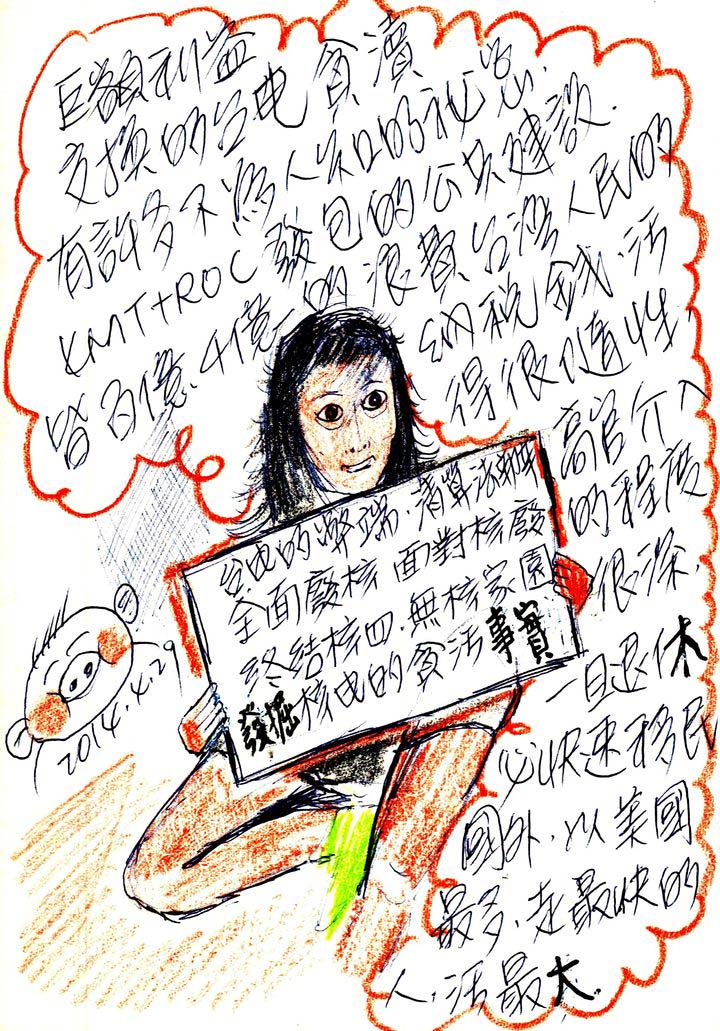 巨額利益
交換的台电貪瀆
有許多不為人知的秘忽.
KMT+ROC發包的公共建設.
皆百億.千億一的浪費台湾人民的
納税金錢.活
得很隨性,
高官介入
的程度
很深.
一旦退休
必快速移民
國外.以美國
最多.走最快的
人.活最大.
台电的弊端.清算
全面廢核 面對核廢
終結核四.無核家園
發掘核电的貪污事實
2014.4.29